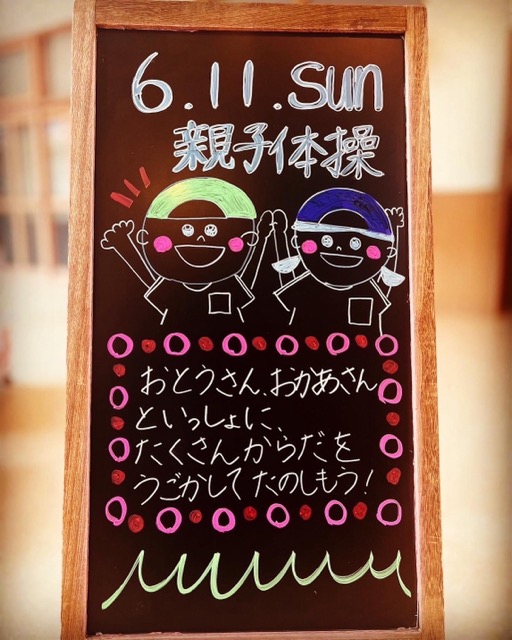 6.11.sun
親子体操
おとうさん、おかあさん
といっしょに、
たくさんからだを
うごかしてたのしもう!